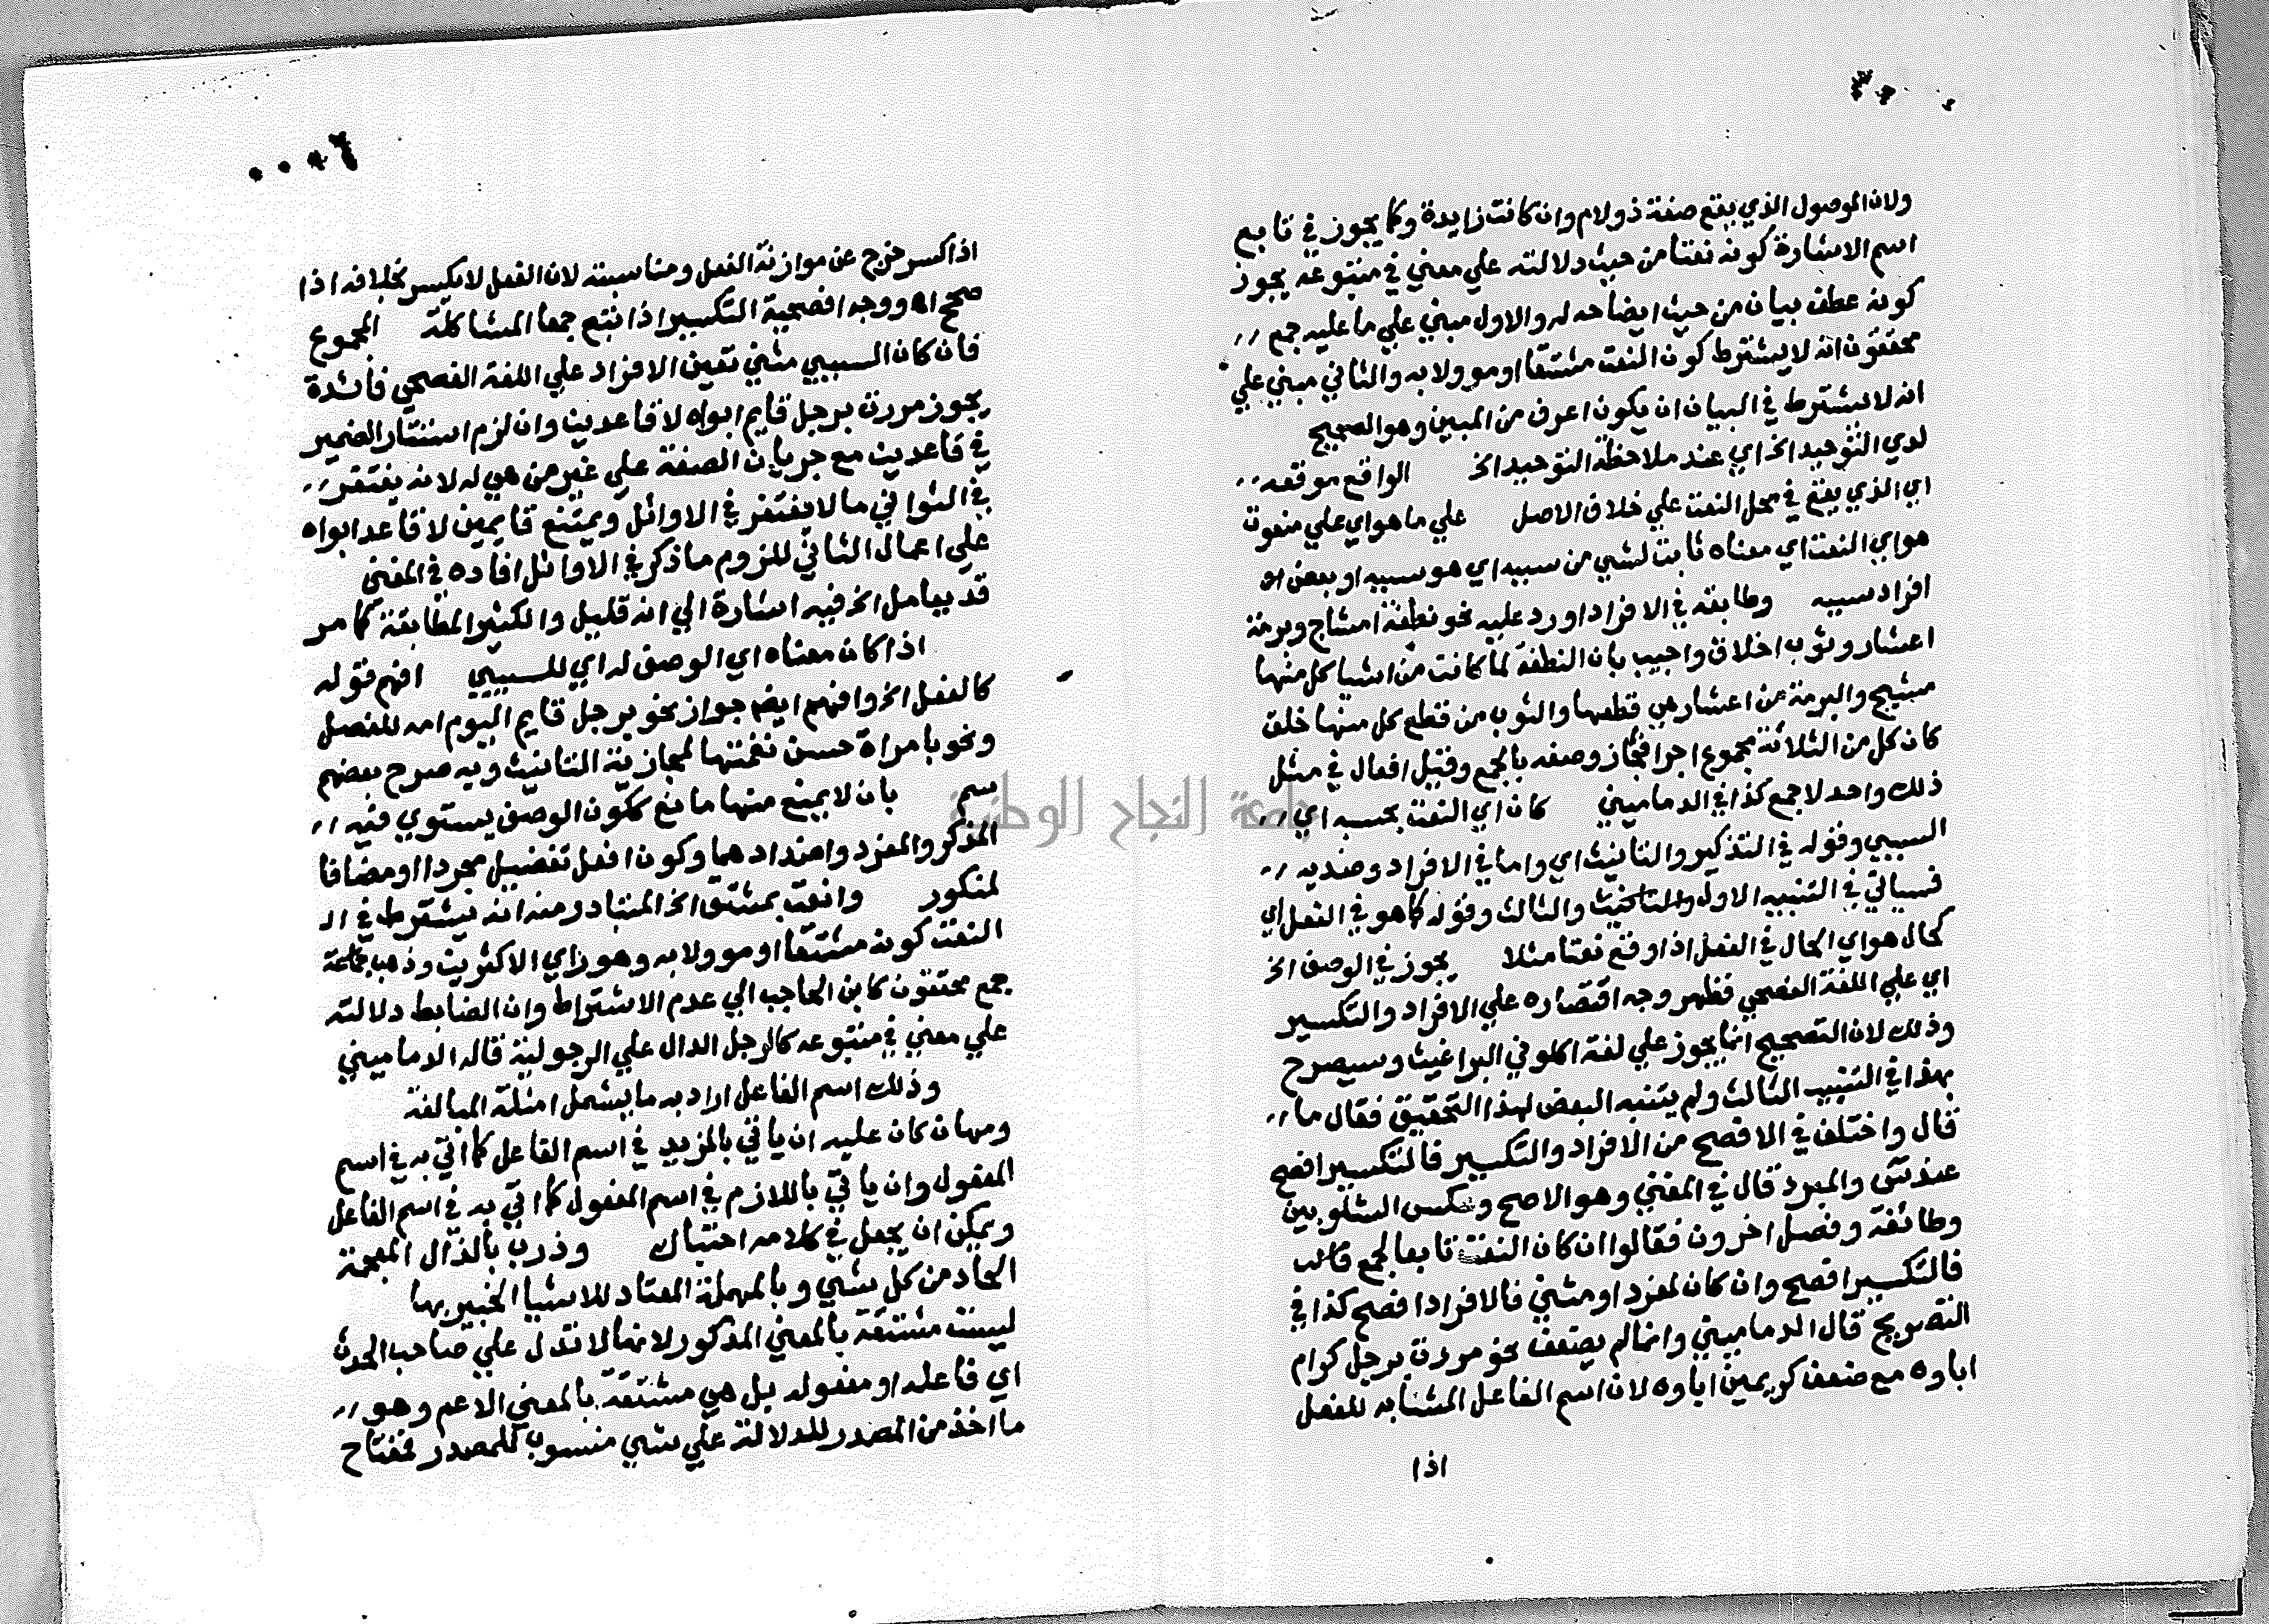 ولان الموصول الذي يقع صفة ذو لام وان كانت زايدة وكما يجوز في تابع
اسم الاشارة كونه نعتا من حيث دلالته علي معني في متبوعه يجوز
كونه عطف بيان من حيث ايضاحه له والاول مبني علي ما عليه جمع
محققون انه لا يشترط كون النعت مشتقا او موولا به والثاني مبني علي
انه لا يشترط في البيان ان يكون اعرف من المبين وهو الصحيح
لدي التوحيد الخ اي عند ملاحظة التوحيد الخ الواقع موقعه
اي الذي يقع في محل النعت علي خلاف الاصل علي ما هو اي علي منعوت
هو اي النعت اي معناه ثابت لشي من سببه اي هو سببه او بعض
افراد سببه وطابقه في الافراد اورد عليه نحو نطفة امشاج وبرمة
اعشار وثوب اخلاق واجيب بان النطفة لما كانت من اشيا كل منها
مشيج والبرمة من اعشار هي قطعها والثوب من قطع كل منها خلق
كان كل من الثلاثة مجموع اجزا فجاز وصفه بالجمع وقيل افعال في مثل
ذلك واحد لا جمع كذا في الدماميني كان اي النعت بحسبه اي
السببي وقوله في التذكير والتانيث اي واما في الافراد وضديه
فسياتي في التنبيه الاول والثالث وقوله كما هو في الفعل اي
كحال هو اي الحال في الفعل اذا وقع نعتا مثلا يجوز في الوصف الخ
اي علي اللغة الفصحي فظهر وجه اقتصاره علي الافراد والتكسير
وذلك لان التصحيح انما يجوز علي لغة اكلوني البراغيث وسيصرح
بهذا في التنبيه الثالث ولم يتنبه البعض لهذا التحقيق فقال ما
قال واختلف في الافصح من الافراد والتكسير فالتكسير افصح
عند س والمبرد قال في المغني وهو الاصح وعكس الشلوبين
وطائفة وفصل اخرون فقالوا ان كان النعت تابعا لجمع
فالتكسير افصح وان كان لمفرد او مثني فالافراد افصح كذا في
التصريح قال الدماميني وانما لم يضعف نحو مررت برجل كرام
اباوه مع ضعف كريمين اباوه لان اسم الفاعل المشابه للفعل
اذا
اذا كسر خرج عن موازنة الفعل ومناسبته لان الفعل لا يكسر بخلافه اذا
صحح اه ووجه افصحية التكسير اذا تبع جمعا المشاكلة المجموع
فان كان السببي مثني تعين الافراد علي اللغة الفصحي فائدة
يجوز مررت برجل قايم ابواه لا قاعدين وان لزم استتار الضمير
في قاعدين مع جريان الصفة علي غير من هي له لانه يغتفر
في الثواني ما لا يغتفر في الاوائل ويمتنع قايمين لا قاعد ابواه
علي اعمال الثاني للزوم ما ذكر في الاوائل افاده في المغني
قد يعامل الخ فيه اشارة الي انه قليل والكثير المطابقة كما مر
اذا كان معناه اي الوصف له اي للسببي افهم قوله
كالفعل الخ وافهم ايضا جواز نحو برجل قايم اليوم امه للفصل
ونحو بامراة حسن نغمتها لمجازية التانيث وبه صرح بعضهم
سم بان لا يمنع منها مانع ككون الوصف يستوي فيه
المذكر والمفرد واضدادهما وكون افعل تفضيل مجردا او مضافا
لمنكور وانعت بمشتق الخ المتبادر منه انه يشترط في ال
النعت كونه مشتقا او موولا به وهو راي الاكثرين وذهب جماعة
جمع محققون كابن الحاجب الي عدم الاشتراط وان الضابط دلالته
علي معني في متبوعه كالرجل الدال علي الرجولية قاله الدماميني
وذلك اسم الفاعل اراد به ما يشمل امثلة المبالغة
ومهان كان عليه ان ياتي بالمزيد في اسم الفاعل كما اتي به في اسم
المفعول وان ياتي باللازم في اسم المفعول كما اتي به في اسم الفاعل
ويمكن ان يجعل في كلامه احتباك وذرب بالذال المعجمة
الحاد من كل شي وبالمهملة المعتاد للاشيا الخبير بها
ليست مشتقة بالمعني المذكور لانها لا تدل علي صاحب الحدث
اي فاعله او مفعوله بل هي مشتقة بالمعني الاعم وهو
ما اخذ من المصدر للدلالة علي شي منسوب للمصدر كمفتاح
جامعة النجاح الوطنية